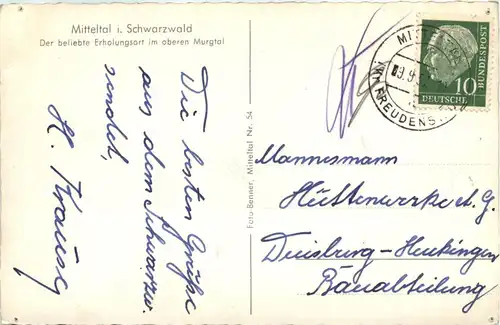 Mitteltal i. Schwarzwald
Der beliebte Erholungsort im oberen Murgtal
Die besten Grüße
aus dem Schwarzw.
sendet,
H. Krausg
Foto Benner, Mitteltal Nr. 54
10
DEUTSCHE
BUNDESPOST
Mannesmann
Hüttenwerke A. G.
Duisburg-Huckingen
Bauabteilung